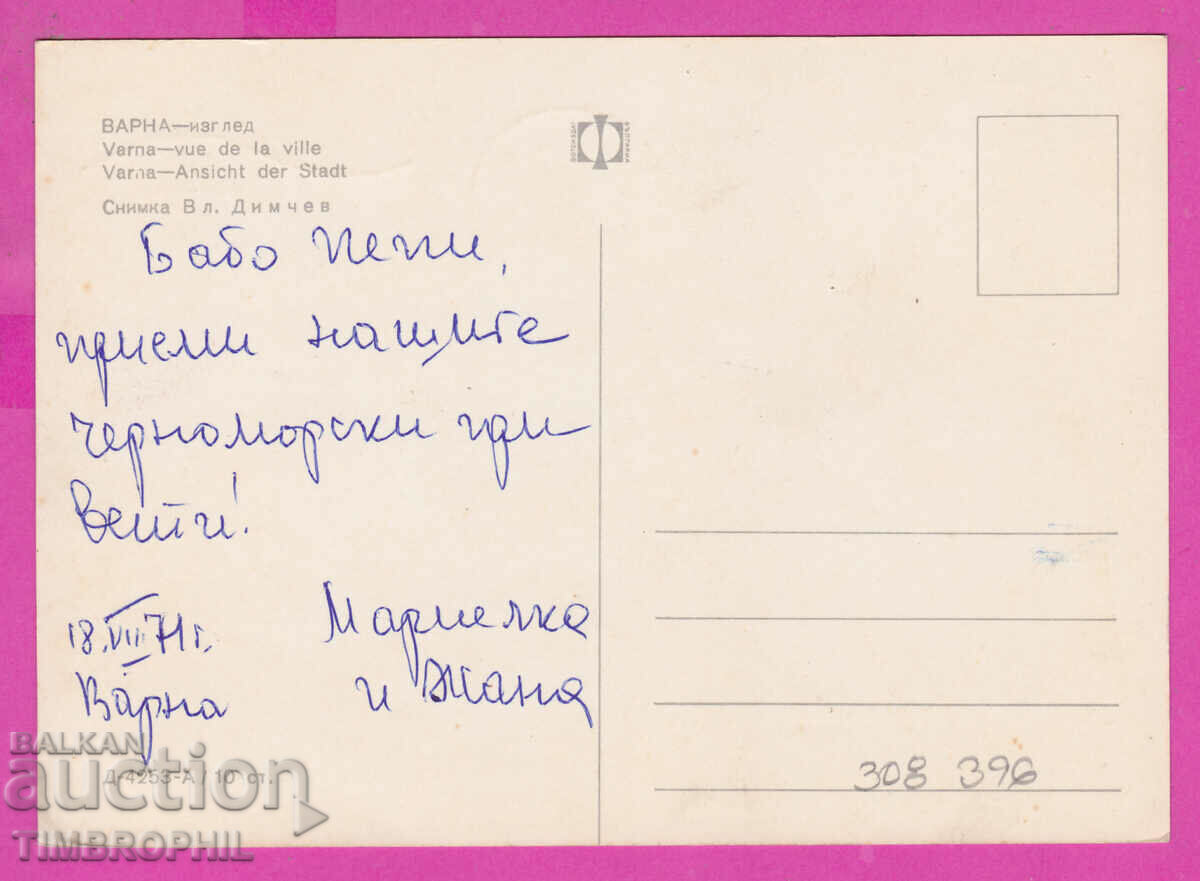 ВАРНА—изглед
Varna—vue de la ville
Varna—Ansicht der Stadt
Снимка Вл. Димчев
Бабо Пепи,
приеми нашите
черноморски при
вети!
Мариелка
и Жана
18.VIII 71 г.
Варна
Д-4253-А / 10 ст.
308 396
BALKAN
auction
TIMBROPHIL